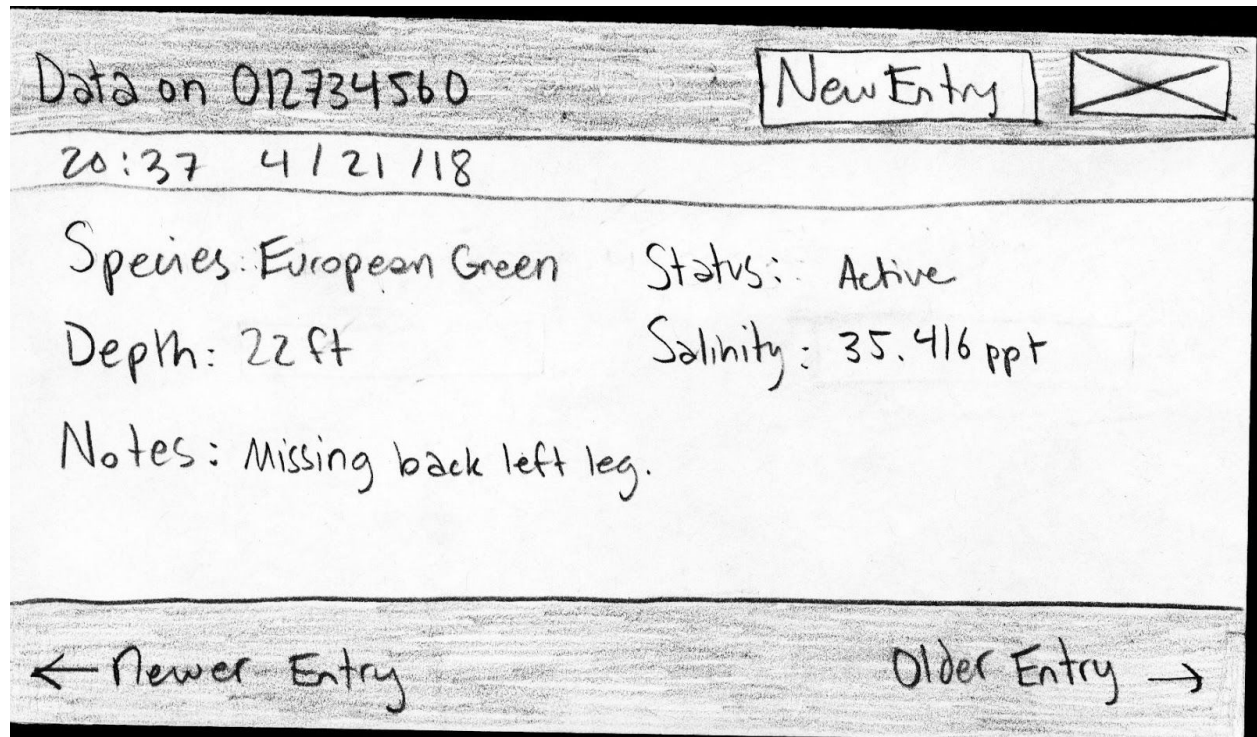 Data on 012734560 New Entry
20:37 4/21/18
Species: European Green Status: Active
Depth: 22 ft Salinity: 35.416 ppt
Notes: Missing back left leg.
← Newer Entry Older Entry →